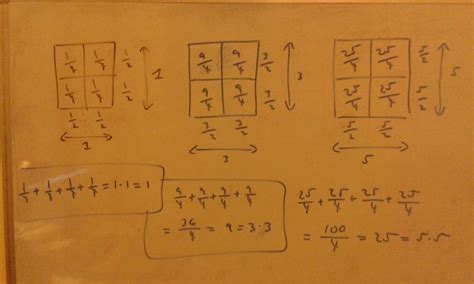 1/4 1/4 1/2
1/4 1/4 1/2
1/2 1/2
1
1
9/4 9/4 3/2
9/4 9/4 3/2
3/2 3/2
3
3
25/4 25/4 5/2
25/4 25/4 5/2
5/2 5/2
5
5
1/4 + 1/4 + 1/4 + 1/4 = 1·1 = 1
9/4 + 9/4 + 9/4 + 9/4
= 36/4 = 9 = 3·3
25/4 + 25/4 + 25/4 + 25/4
= 100/4 = 25 = 5·5